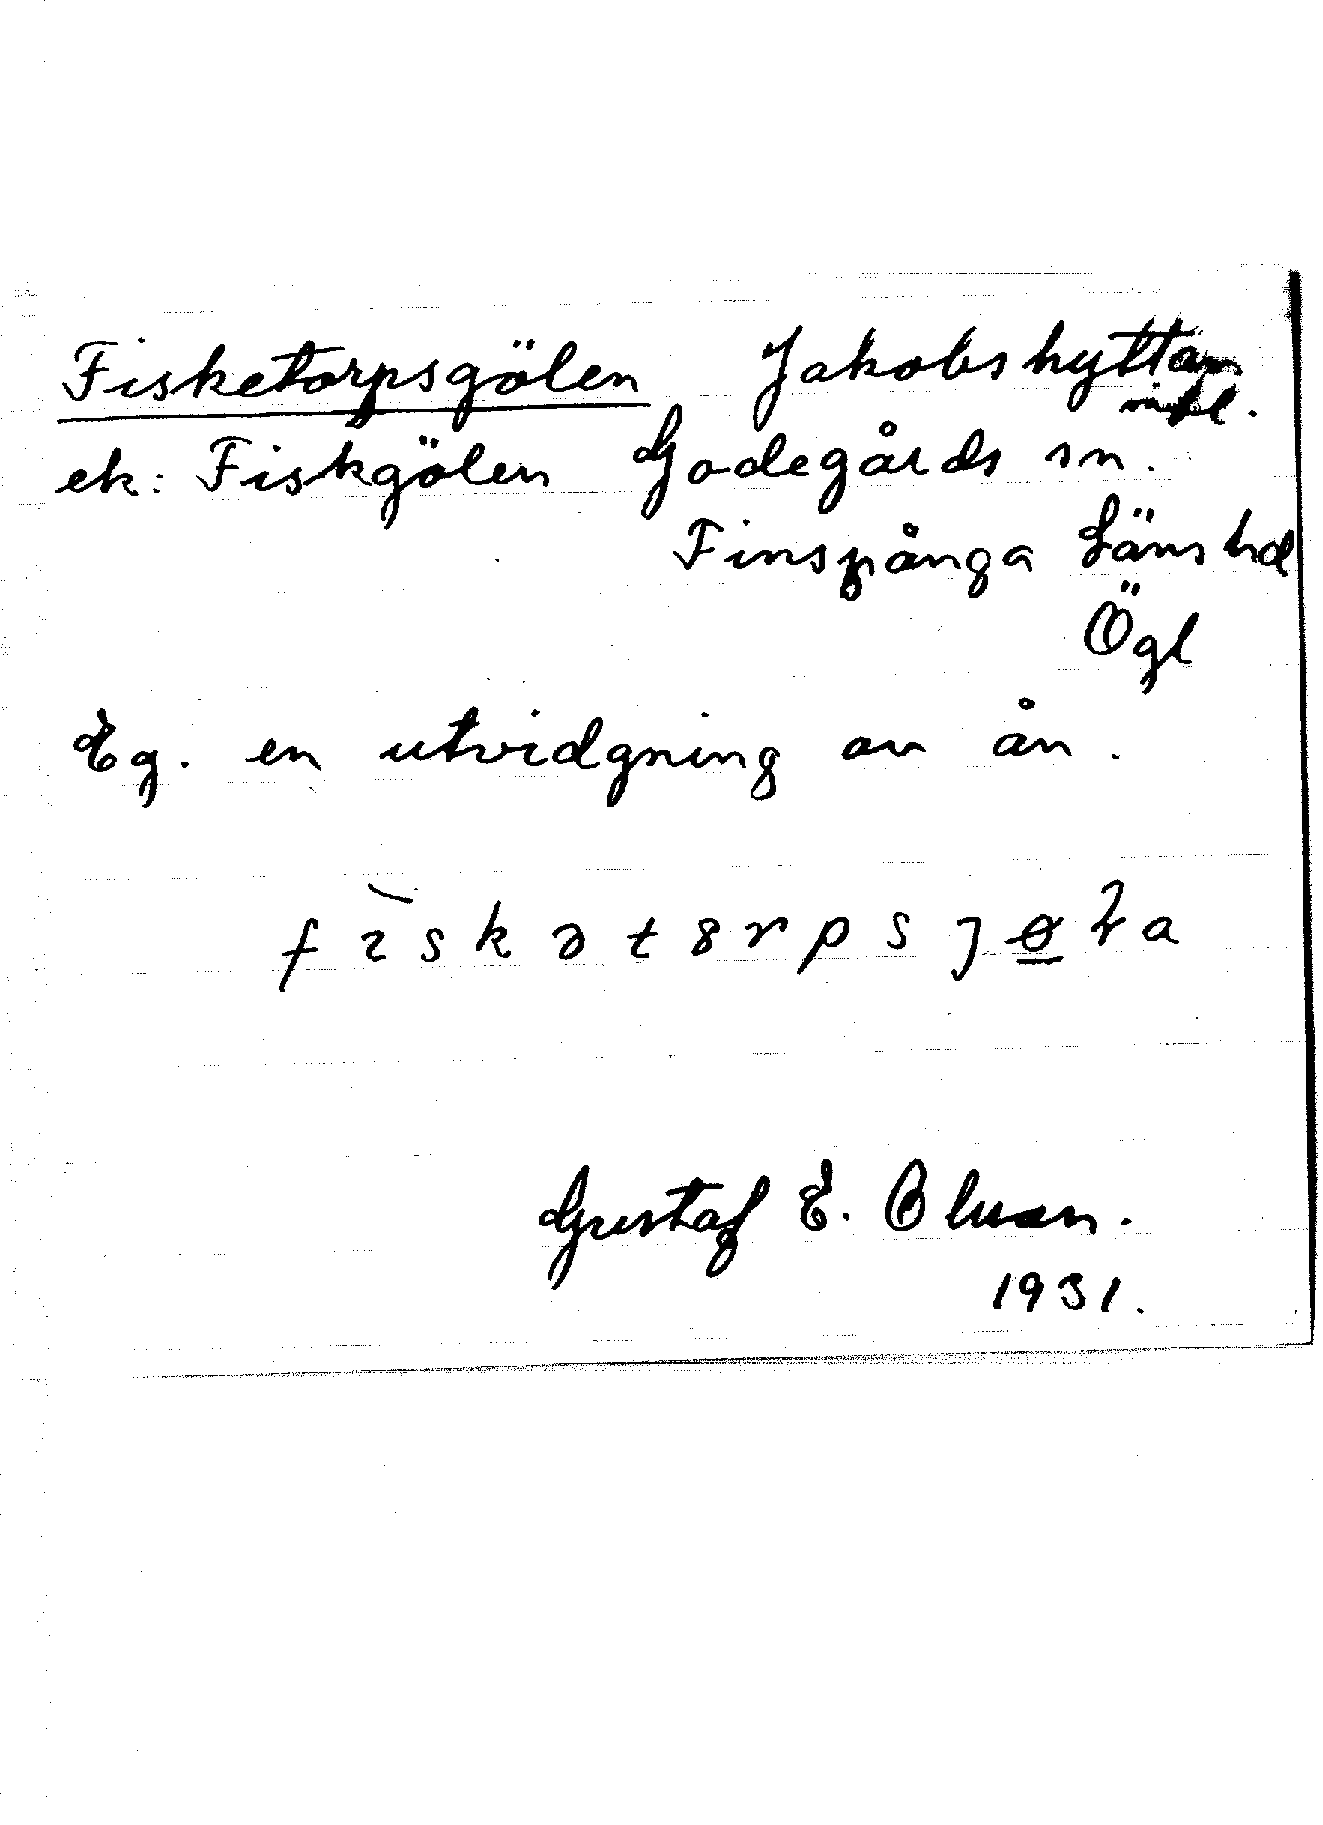 Fisketorpsgölen Jakobshyttan
ek: Fiskgölen Godegårds sn.
Finspånga Läns hd
Ögl
Eg. en utvidgning av ån.
fıskət8rpsȷɵła
Gustaf E. Oluan.
1931.